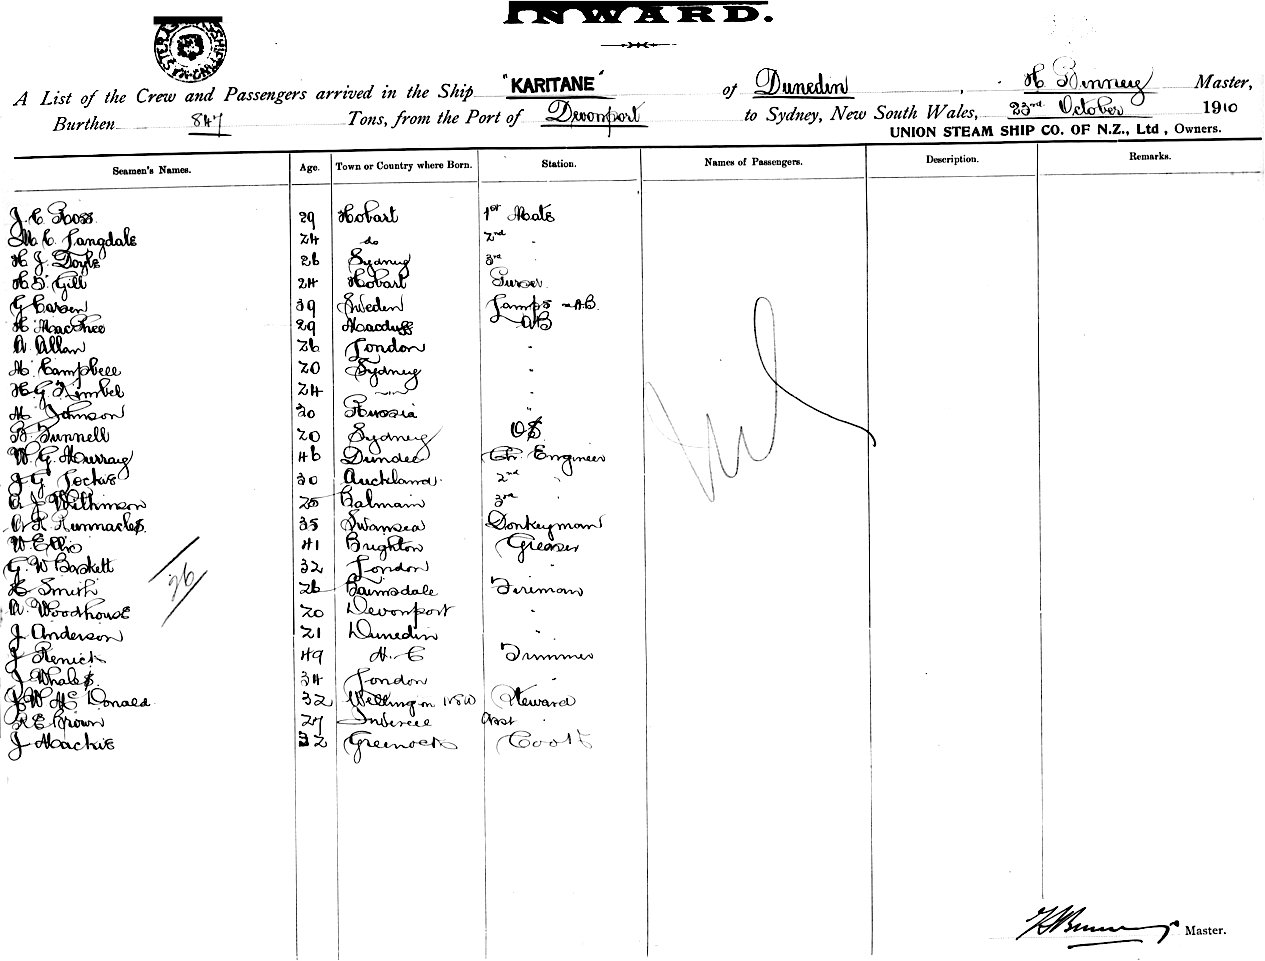 INWARD.
A List of the Crew and Passengers arrived in the Ship "KARITANE" of Dunedin, H Binney Master,
Burthen 847 Tons, from the Port of Devonport to Sydney, New South Wales, 23rd October 1910
UNION STEAM SHIP CO. OF N.Z., Ltd, Owners.
Seamen's Names. Age. Town or Country where Born. Station. Names of Passengers. Description. Remarks.
J. C Ross 29 Hobart 1st Mate
M. C. Langdale 24 do 2nd "
H J. Doyle 26 Sydney 3rd "
H S. Gill 24 Hobart Purser
G Carsen 39 Sweden Lamps & AB.
H MacPhee 29 Macduff AB
A Allan 26 London "
M Campbell 20 Sydney "
H G Kimbel 24 " "
M Johnson 30 Russia "
B. Funnell 20 Sydney OS
W. G. Murray 46 Dundee Ch. Engineer
J G Jockie 30 Auckland 2nd "
A J Wilkinson 25 Balmain 3rd "
A R Runnacles 35 Swansea Donkeyman
W Ellis 41 Brighton Greaser
G. W Baskett 32 London "
H Smith 26 Bairnsdale Fireman
A. Woodhouse 20 Devonport "
J Anderson 21 Dunedin "
J Renick 49 N. C Trimmer
J Whales 34 London "
J W McDonald 32 Wellington NSW Steward
R E Brown 27 Asst "
J Mackie 32 Greenock Cook
26
Nil
H Binney Master.